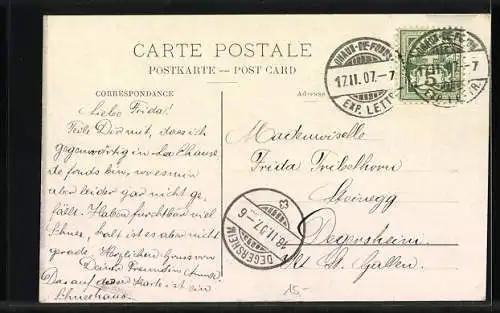 CARTE POSTALE
POSTKARTE — POST CARD
CORRESPONDANCE
Adresse
Liebe Frida!
Teile Dir mit, dass ich
gegenwärtig in La Chaux
de fonds bin, wo es mir
aber leider gar nicht ge-
fällt. Haben furchtbar viel
Schnee, kalt ist es aber nicht
gerade. Herzlichen Gruss von
Deiner Freundin
Das auf der Karte ist ein
Schneehaus.
Mademoiselle
Frida Tribelhorn
Steinegg
Degersheim
Kt. St. Gallen.
CHAUX-DE-FONDS
17.II.07.-7
EXP. LETTR.
DEGERSHEIM
18.II.07.-6
15.-